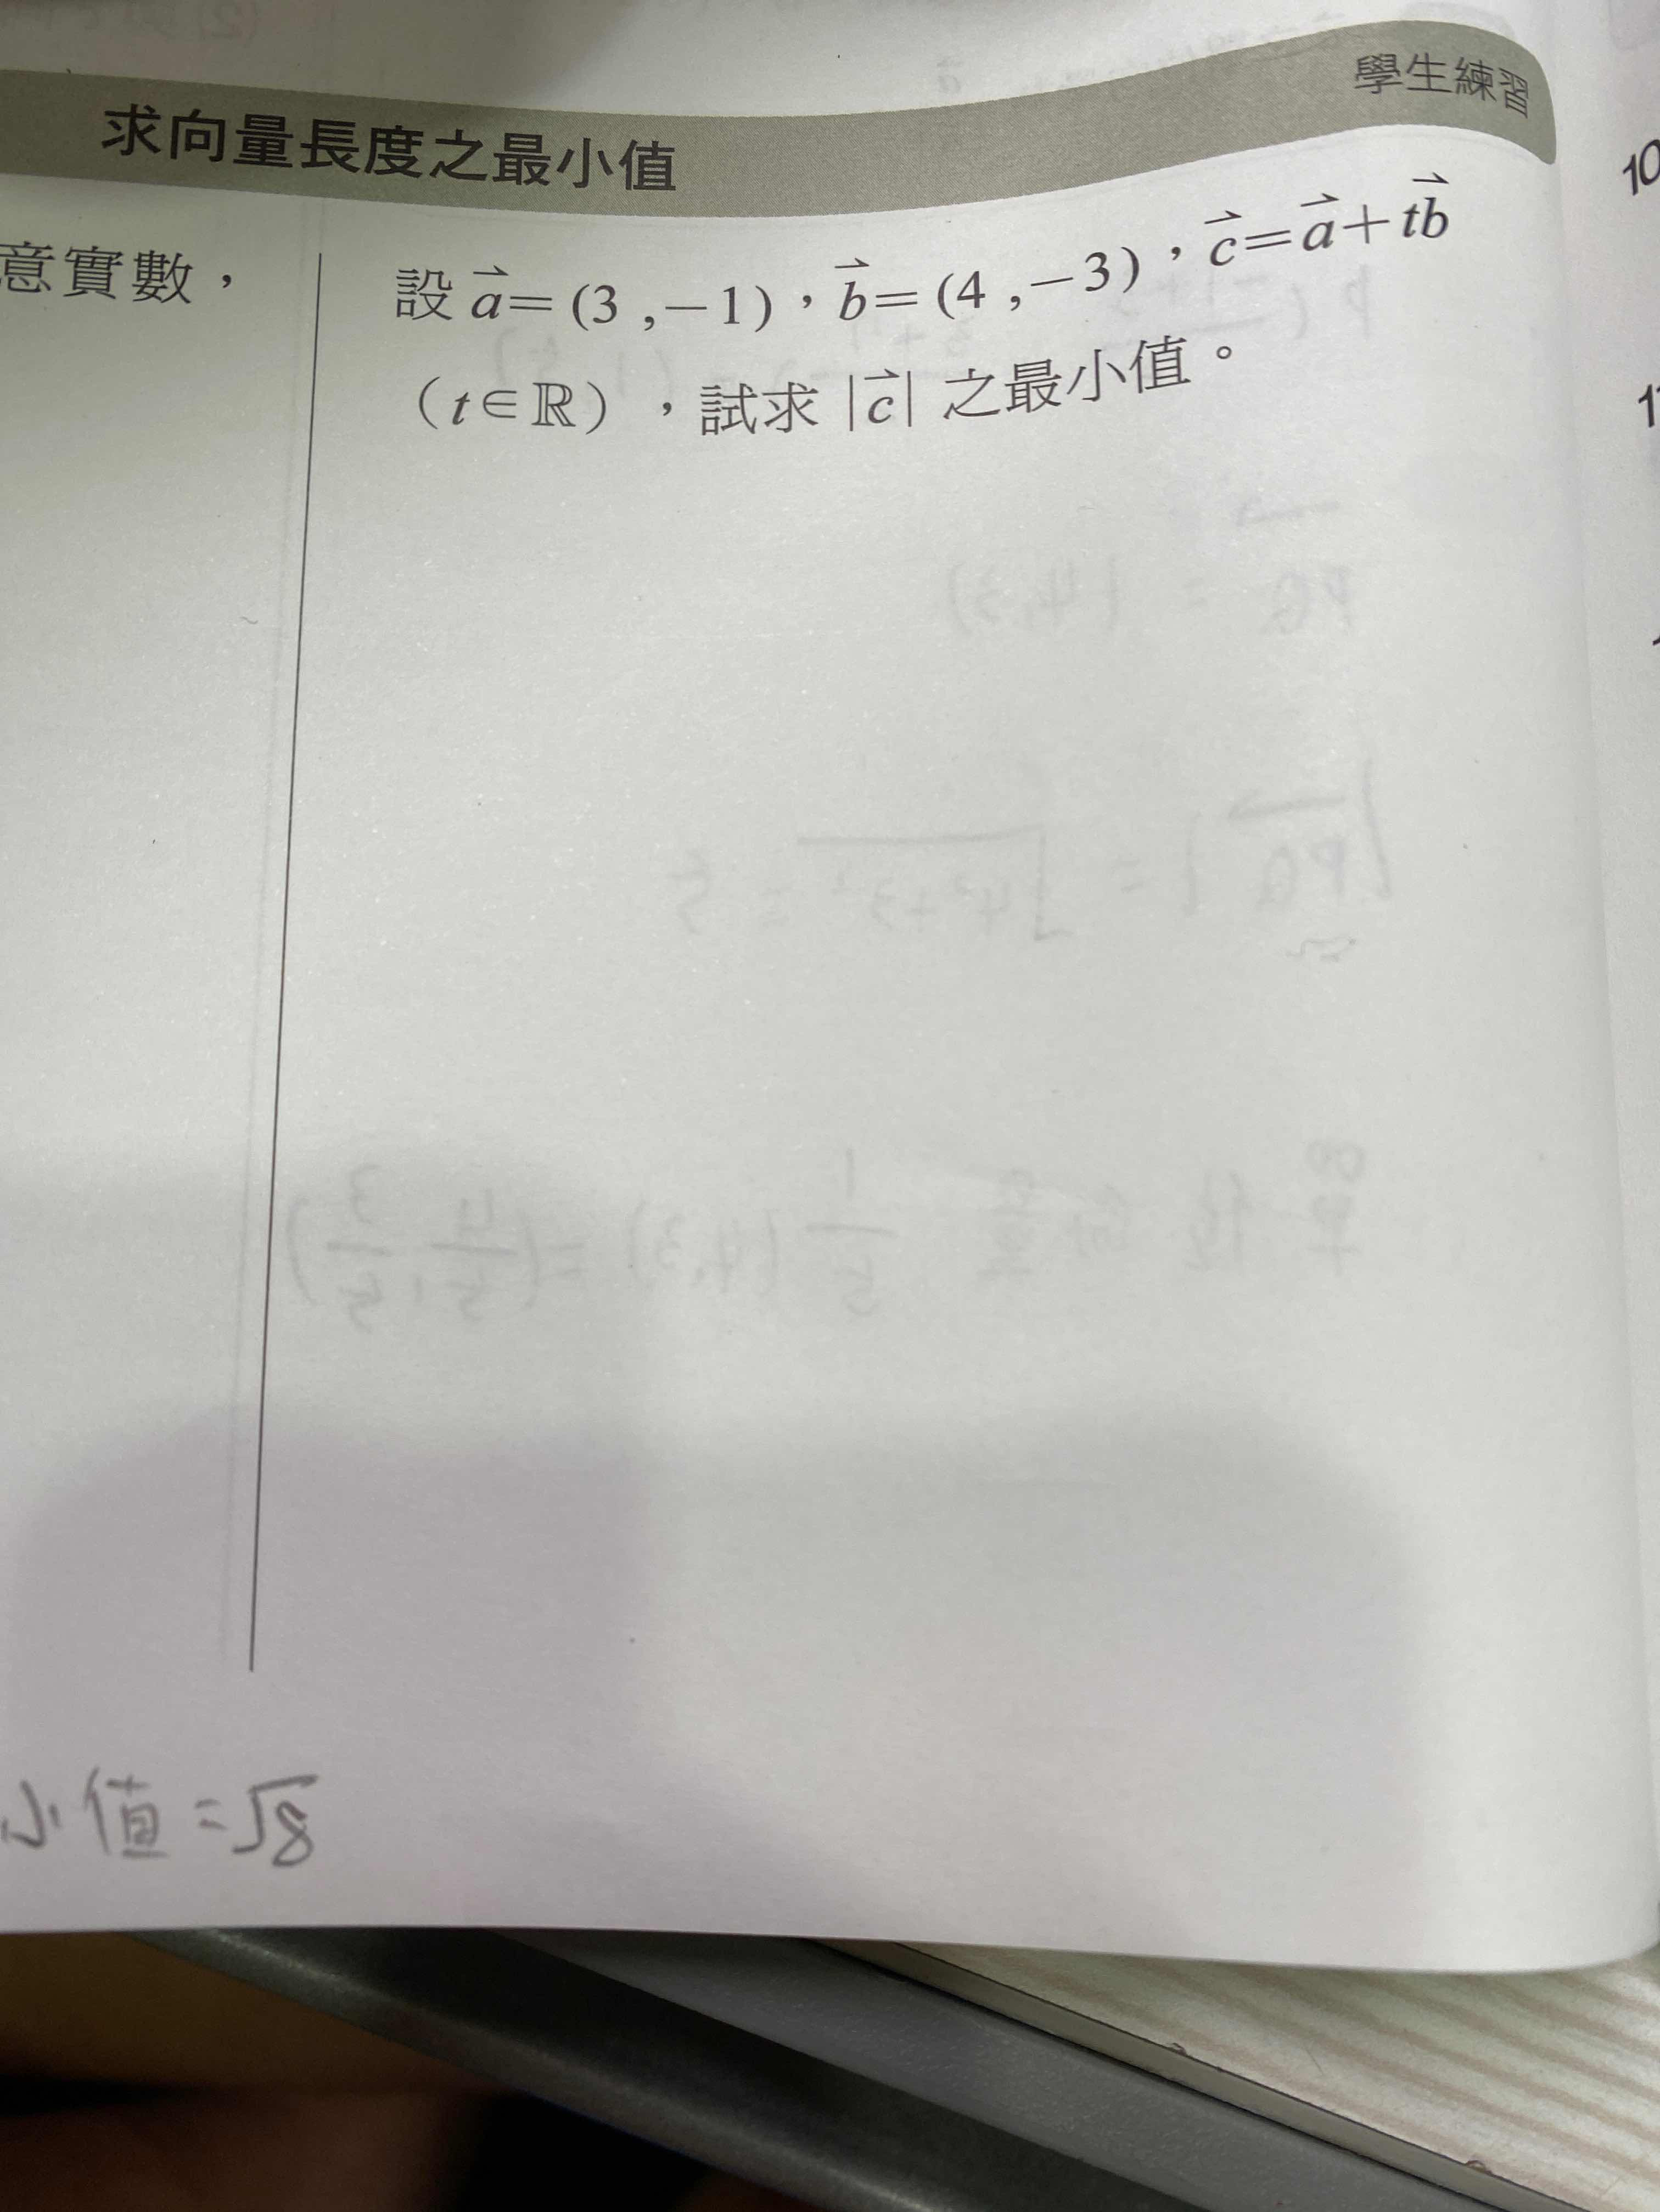 學生練習
求向量長度之最小值
意實數，
設 a⃗=(3,-1)，b⃗=(4,-3)，c⃗=a⃗+tb⃗
(t∈ℝ)，試求 |c⃗| 之最小值。
小值=√8
10